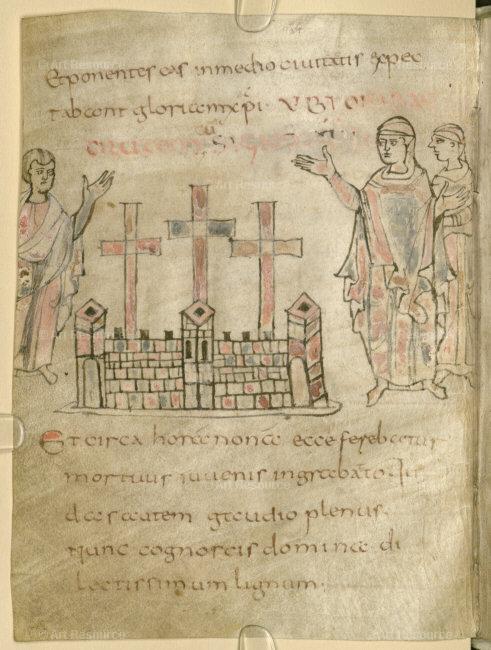 Et ponentes eas in medio civitatis expec
tabant gloriam xpi. UBI
civitatem
Et circa horam nonam ecce ferebatur
mortuus iuvenis in grabato Iu
das autem gaudio plenus.
Nunc cognoscis domina di
lectissimum lignum.
© Art Resource